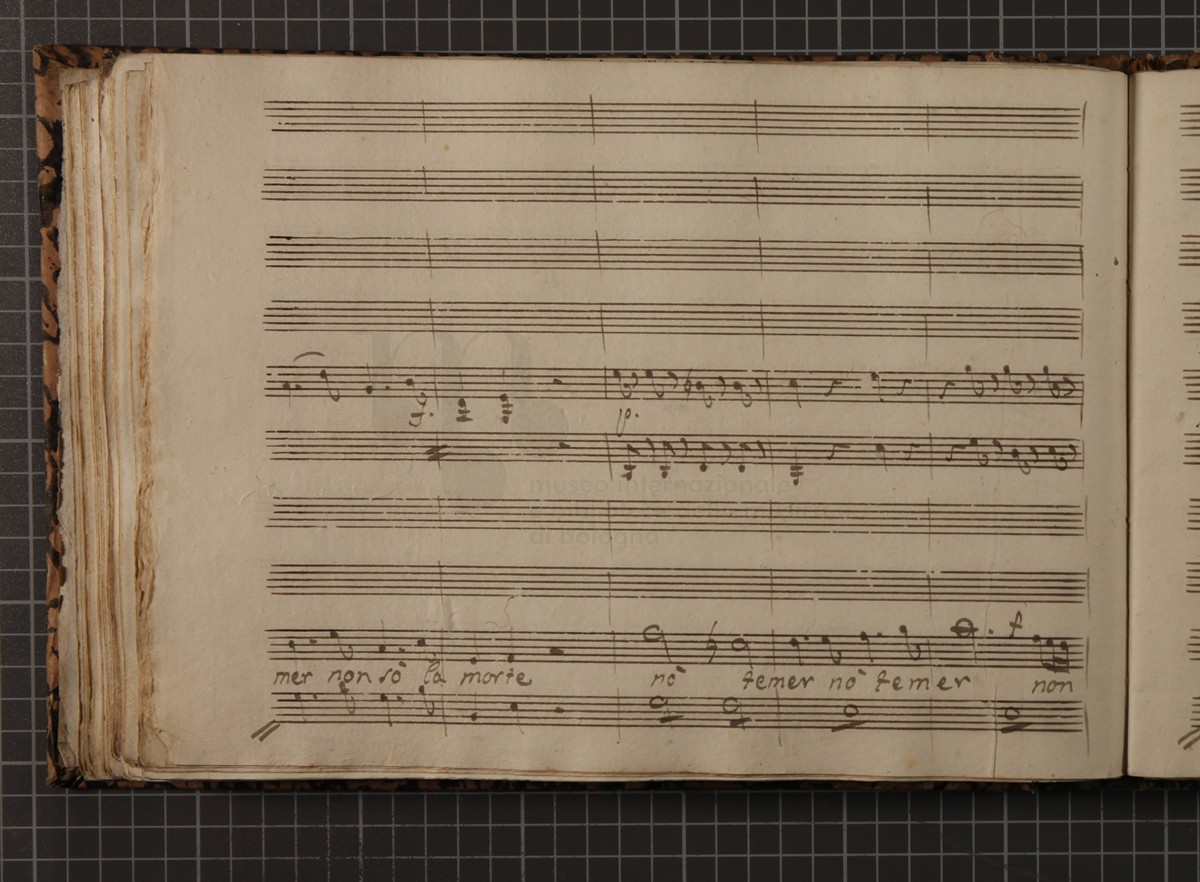 f.
p.
museo internazionale
di bologna
mer non sò la morte nò temer nò temer non